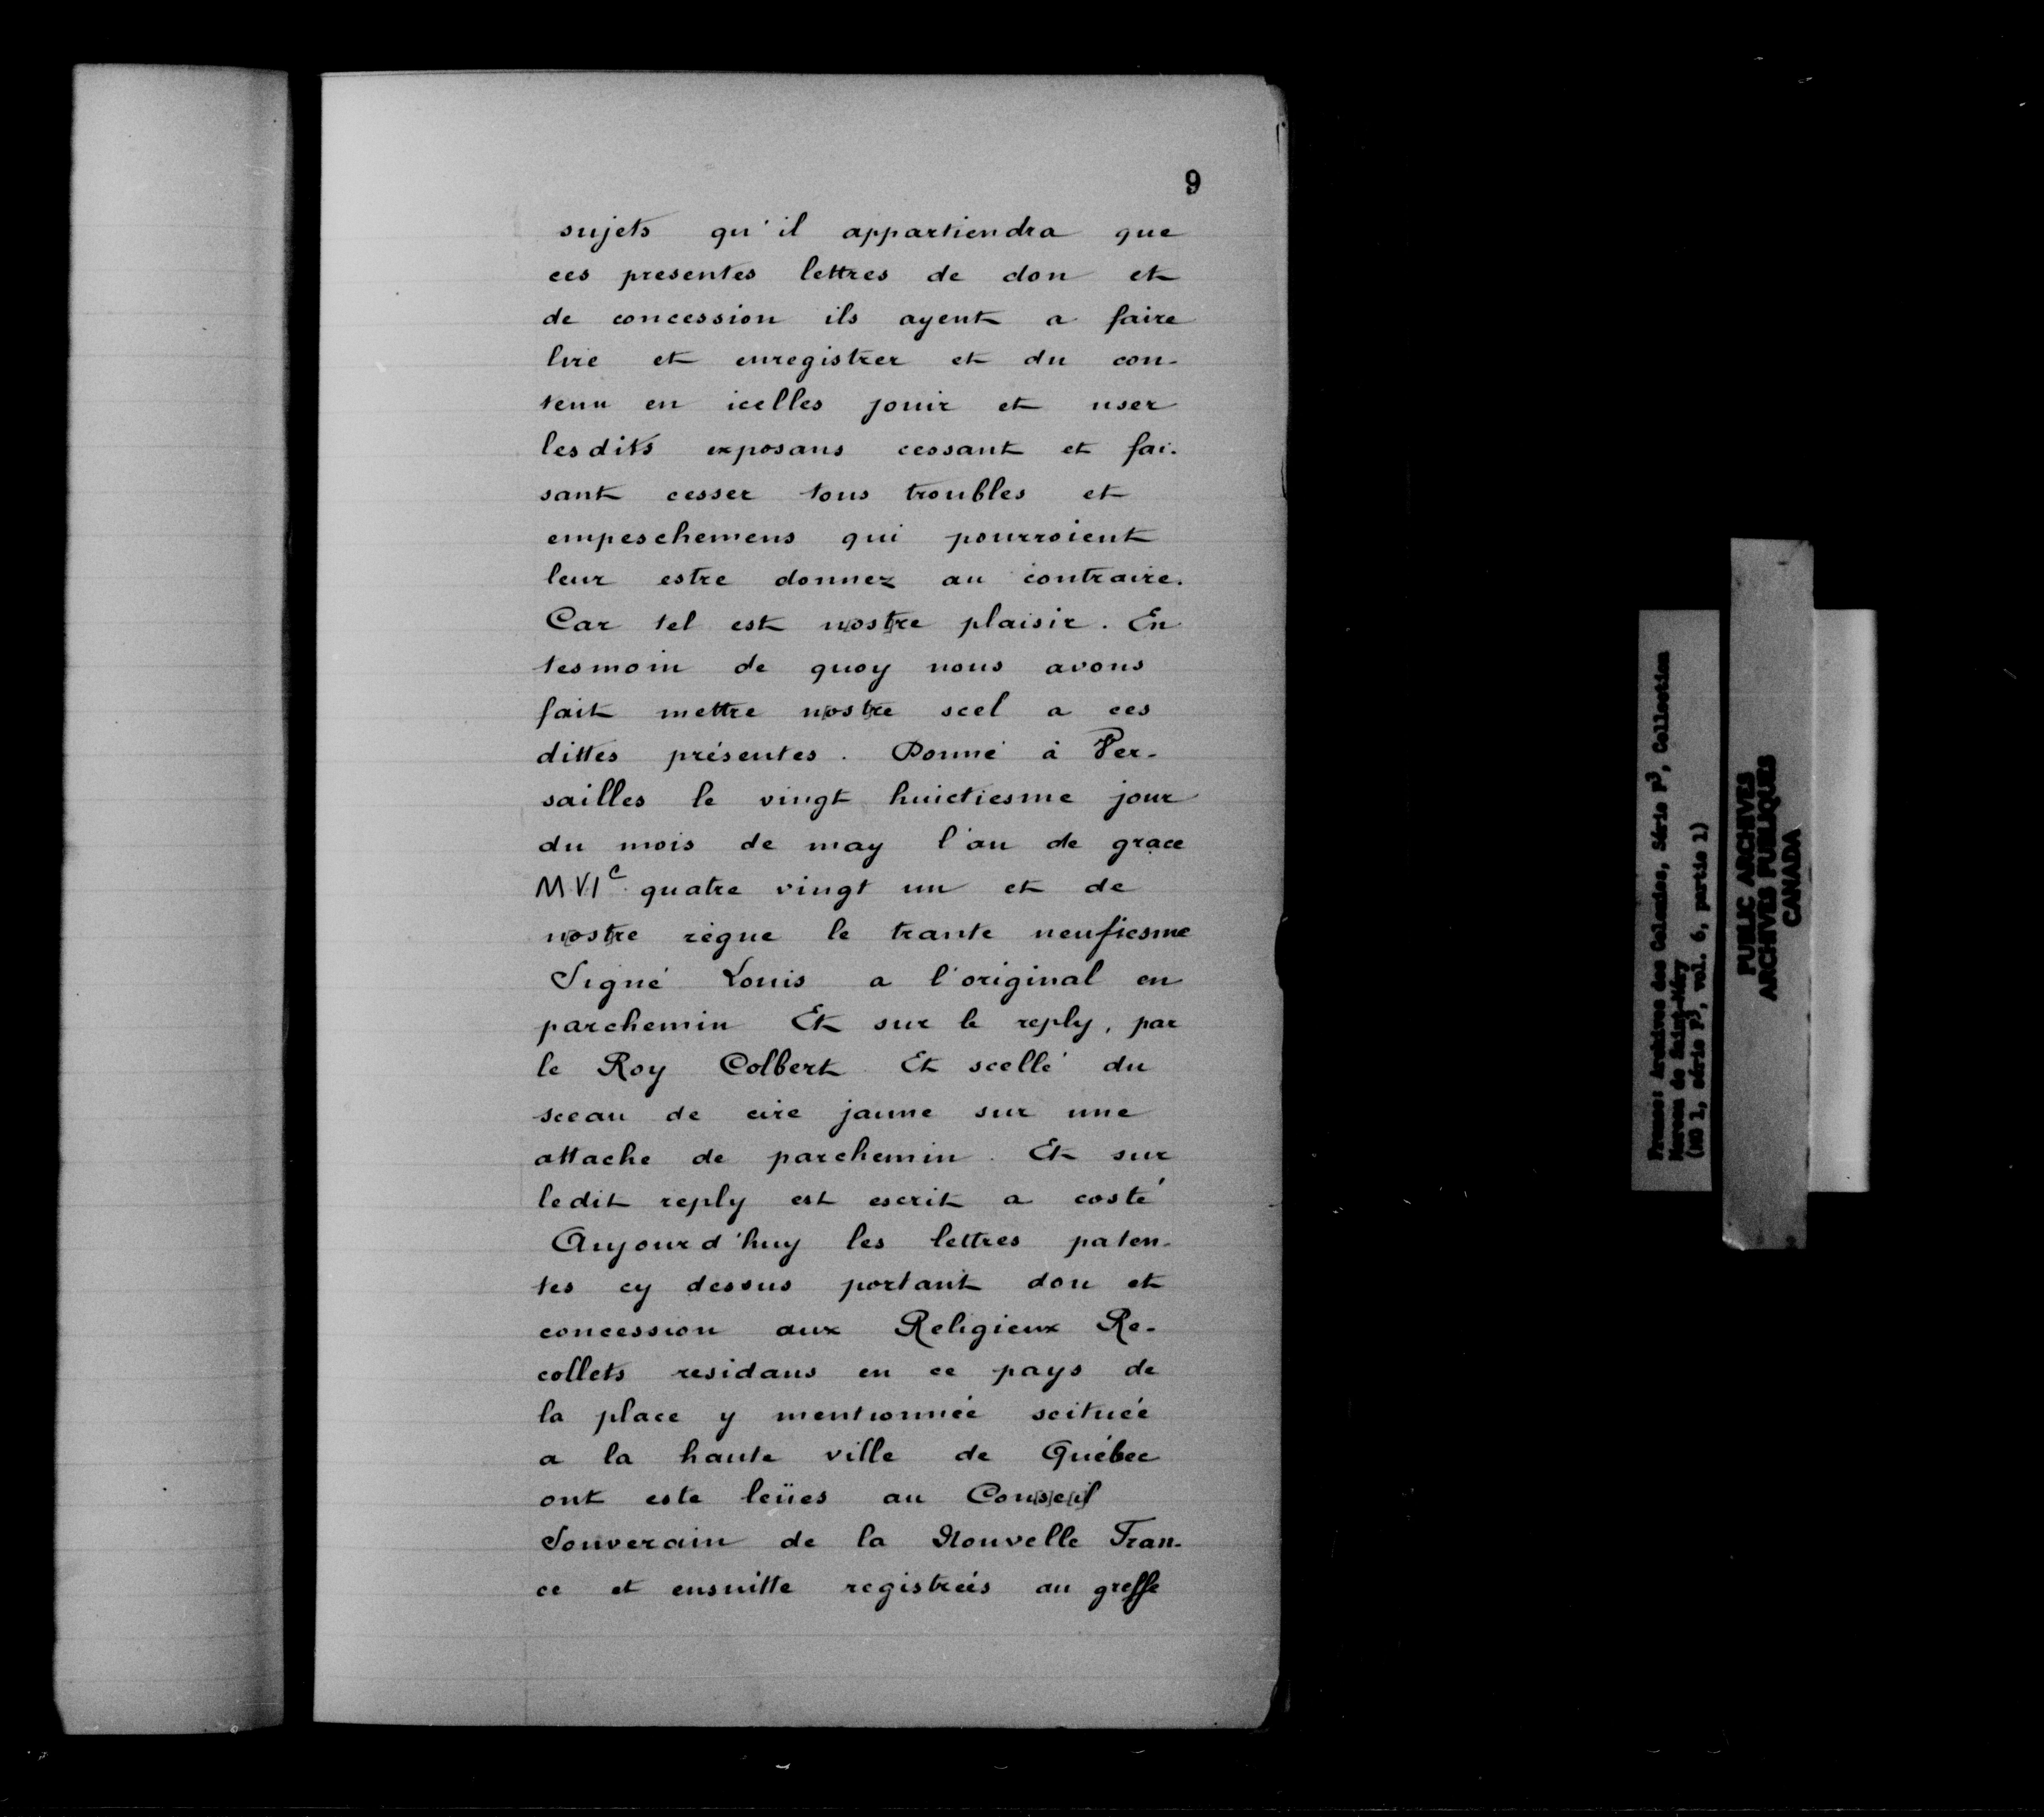 9
sujets qu'il appartiendra que
ces presentes lettres de don et
de concession ils ayent a faire
lire et enregistrer et du con-
tenu en icelles jouir et user
lesdits exposans cessant et fai-
sant cesser tous troubles et
empeschemens qui pourroient
leur estre donnez au contraire.
Car tel est n[ost]re plaisir. En
tesmoin de quoy nous avons
fait mettre n[ost]re scel a ces
dittes présentes. Donné à Ver-
sailles le vingt huictiesme jour
du mois de may l'an de grace
M VIc quatre vingt un et de
n[ost]re règne le trante neufiesme
Signé Louis a l'original en
parchemin Et sur le reply, par
le Roy Colbert. Et scellé du
sceau de cire jaune sur une
attache de parchemin. Et sur
ledit reply est escrit a costé
Aujourd'huy les lettres paten-
tes cy dessus portant don et
concession aux Religieux Re-
collets residans en ce pays de
la place y mentionnée scituée
a la haute ville de Québec
ont este leües au Con[s]e[i]l
Souverain de la Nouvelle Fran-
ce et ensuitte registrées au greffe
France: Archives des Colonies, Série F3, Collection
Moreau de Saint-Méry
(MG 1, série F3, vol. 6, partie 1)
PUBLIC ARCHIVES
ARCHIVES PUBLIQUES
CANADA